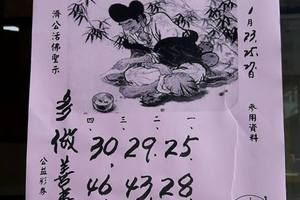 1月23.25.27.日
參用資料
濟公活佛聖示
多做善
四、三、二、一、
30. 29. 25
46 43 28
公益彩券